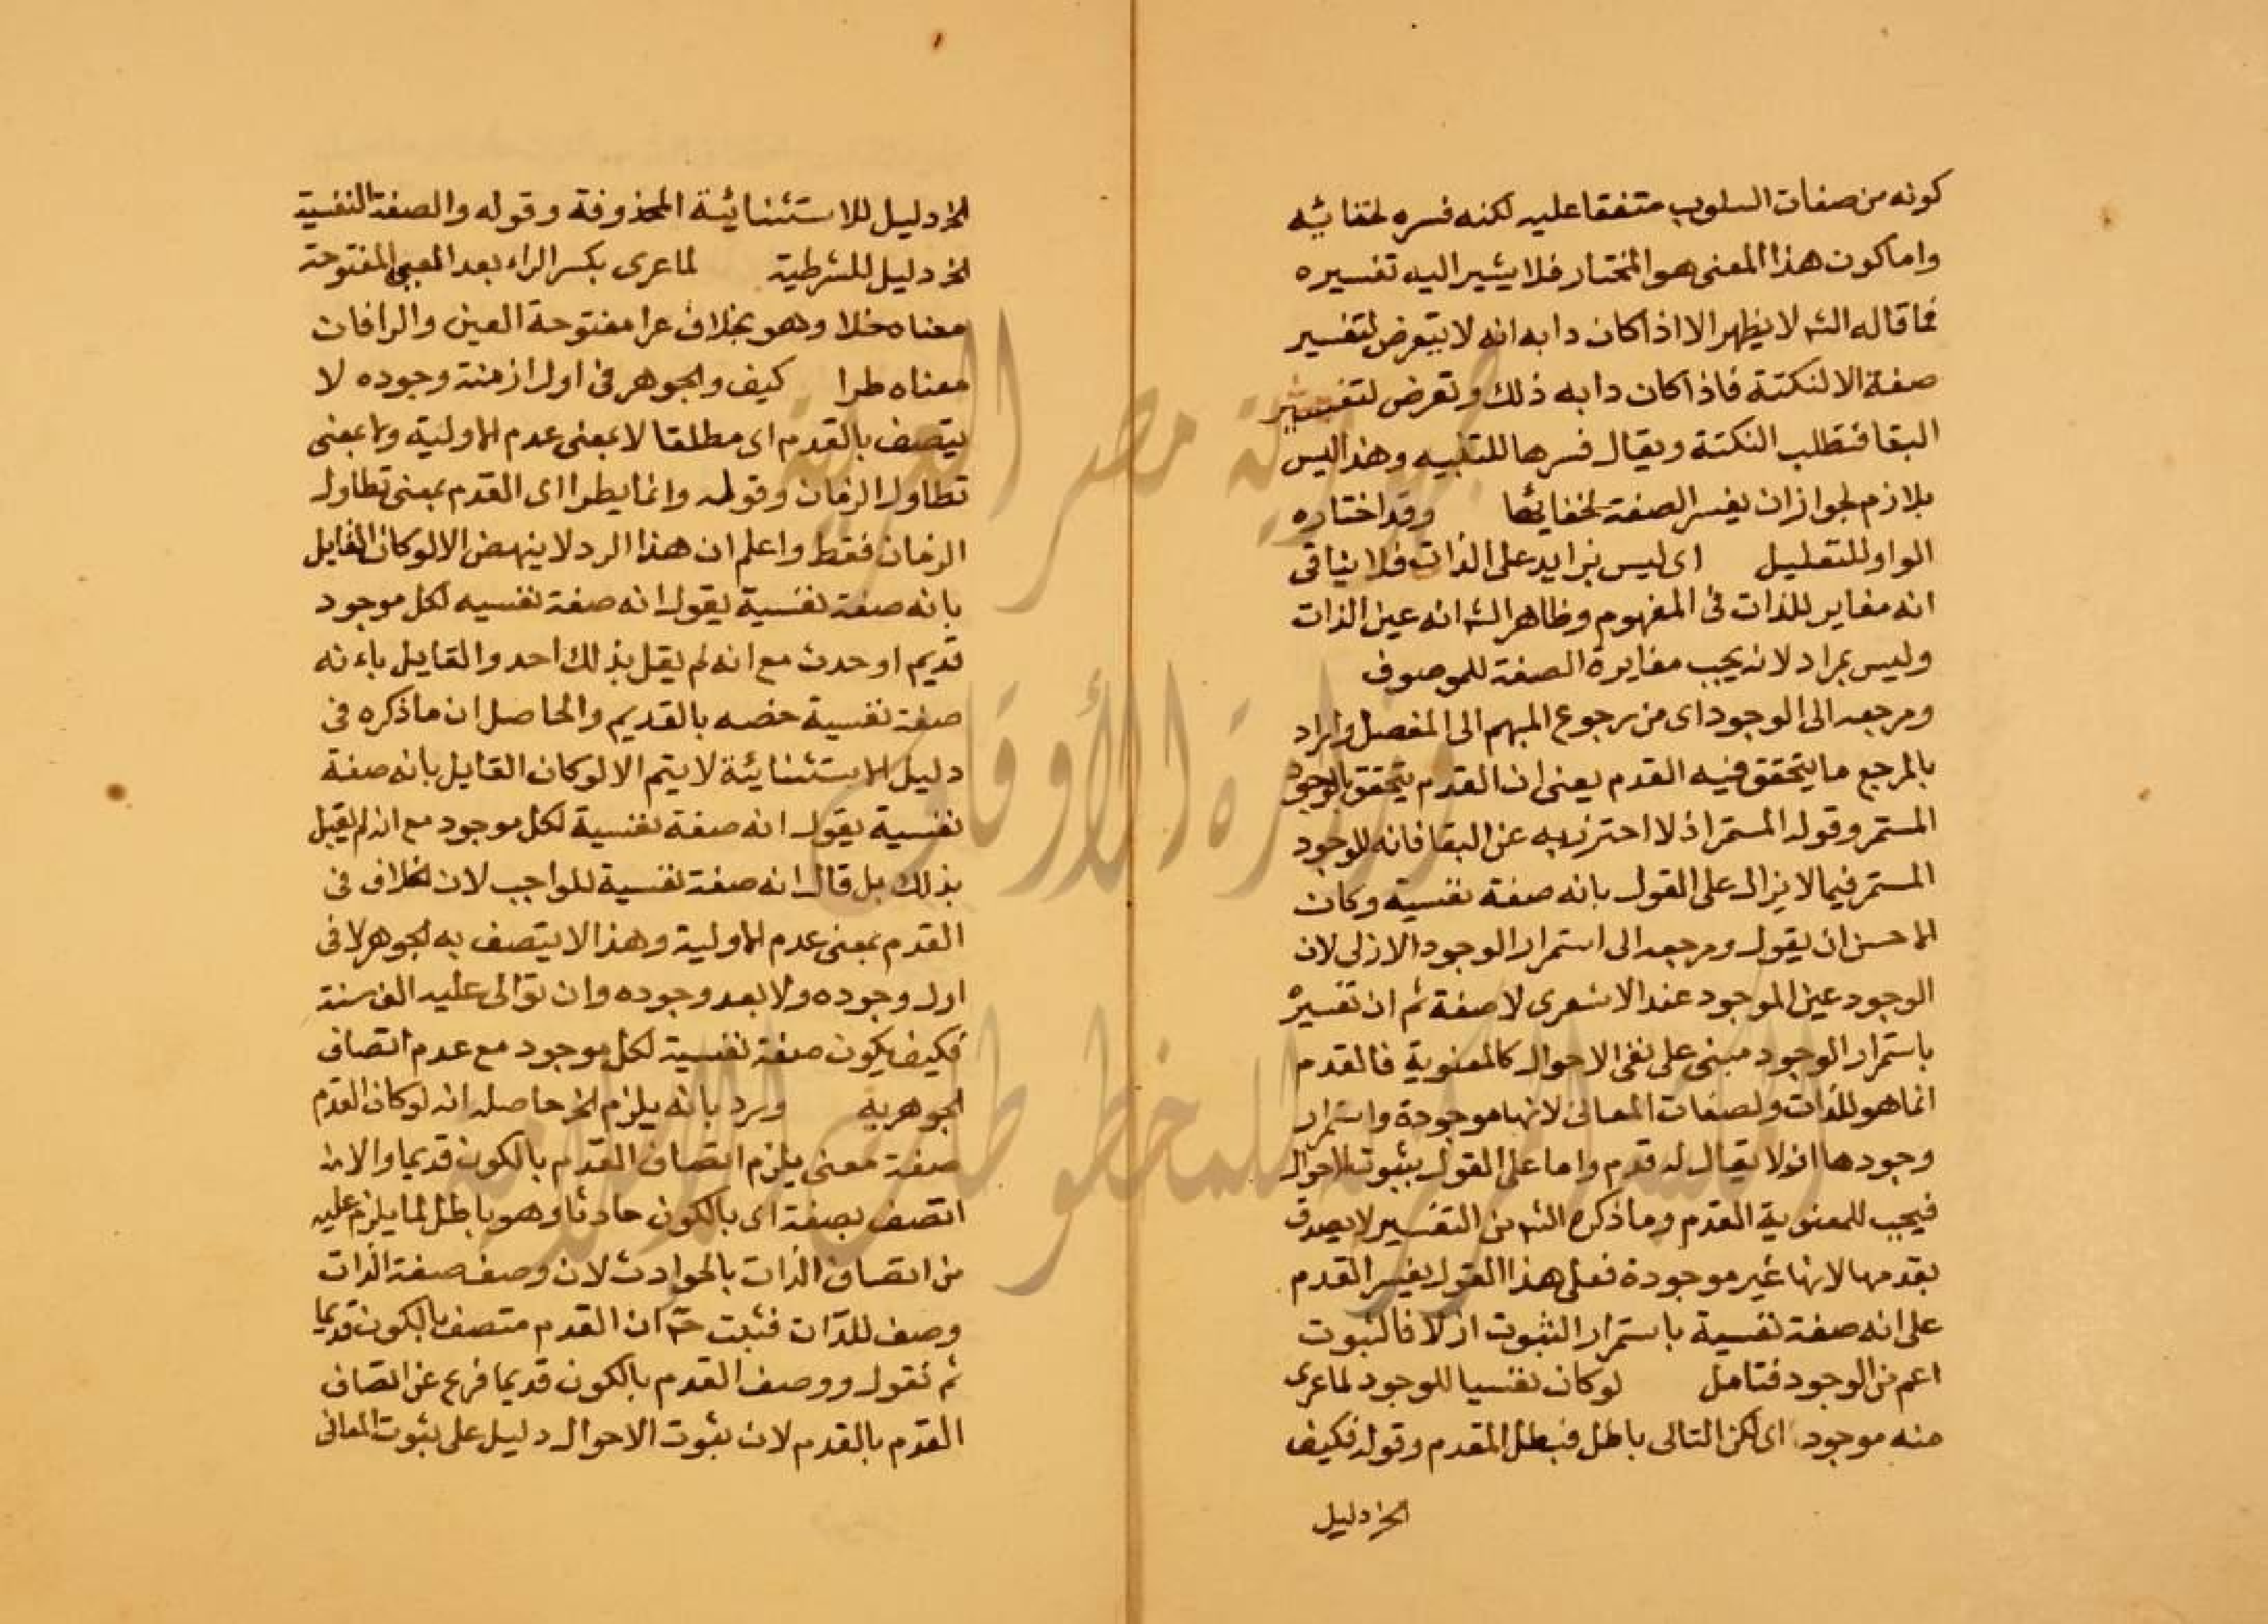 كونه من صفات السلوب متفقا عليه لكنه فسره لخفائه
واما كون هذا المعنى هو المختار فلا يشير اليه تفسيره
فما قاله الشـ لا يظهر الا اذا كان دابه انه لا يتعرض لتفسير
صفة الا لنكتة فاذا كان دابه ذلك وتعرض لتفسير
البقا فتطلب النكتة ويقال فسرها للتنبيه وهذا ليس
بلازم لجواز ان يفسر الصفة لخفائها وقد اختاره
الواو للتعليل اى ليس بزايد على الذات فلا ينافى
انه مغاير للذات فى المفهوم وظاهر الشـ انه عين الذات
وليس بمراد لانه يجب مغايرة الصفة للموصوف
ومرجعه الى الوجود اى من رجوع المبهم الى المفصل واراد
بالمرجع ما يتحقق فيه القدم يعنى ان القدم يتحقق بالوجود
المستمر وقوله المستمر اذ لا احترز به عن البقا فانه للوجود
المستمر فيما لا يزال على القول بانه صفة نفسية وكان
الاحسن ان يقول ومرجعه الى استمرار الوجود الازلى لان
الوجود عين الموجود عند الاشعرى لا صفة ثم ان تفسيره
باستمرار الوجود مبنى على نفى الاحوال كالمعنوية فالقدم
انما هو للذات ولصفات المعانى لانها موجودة واستمرار
وجودها ازلا يقال له قدم واما على القول بثبوت الاحوال
فيجب للمعنوية القدم وما ذكره الشـ من التفسير لا يصدق
بقدمها لانها غير موجودة فعلى هذا القول يفسر القدم
على انه صفة نفسية باستمرار الثبوت ازلا فالثبوت
اعم من الوجود فتامل لو كان نفسيا للوجود لما عرى
منه موجود اى لكن التالى باطل فبطل المقدم وقوله فكيف
الخ دليل
الخ دليل للاستثنائية المحذوفة وقوله والصفة النفسية
الخ دليل للشرطية لما عرى بكسر الراء بعد العين المفتوحة
معناه خلا وهو بخلاف عرا مفتوحة العين والرا فان
معناه طرا كيف والجوهر فى اول ازمنة وجوده لا
يتصف بالقدم اى مطلقا لا بمعنى عدم الاولية ولا بمعنى
تطاول الزمان وقوله وانما يطرا اى القدم بمعنى تطاول
الزمان فقط واعلم ان هذا الرد لا ينهض الا لو كان القايل
بانه صفة نفسية يقول انه صفة نفسيه لكل موجود
قديم او حدث مع انه لم يقل بذلك احد والقايل بانه
صفة نفسية خصه بالقديم والحاصل ان ما ذكره فى
دليل الاستثنائية لا يتم الا لو كان القايل بانه صفة
نفسية يقول انه صفة نفسية لكل موجود مع انه لم يقل
بذلك بل قال انه صفة نفسية للواجب لان الخلاف فى
القدم بمعنى عدم الاولية وهذا لا يتصف به الجوهر لا فى
اول وجوده ولا بعد وجوده وان توالى عليه الف سنة
فكيف يكون صفة نفسية لكل موجود مع عدم اتصاف
الجوهر به ورد بانه يلزم الخ حاصله انه لو كان القدم
صفة معنى يلزم اتصاف القدم بالكون قديما والا لزم
اتصف بصفة اى بالكون حادثا وهو باطل لما يلزم عليه
من اتصاف الذات بالحوادث لان وصف صفة الذات
وصف للذات فثبت حـ ان القدم متصف بالكون قديما
ثم نقول ووصف القدم بالكون قديما فرع عن اتصاف
القدم بالقدم لان ثبوت الاحوال دليل على ثبوت المعانى
جمهورية مصر العربية
وزارة الأوقاف
المكتبة المركزية للمخطوطات الإسلامية